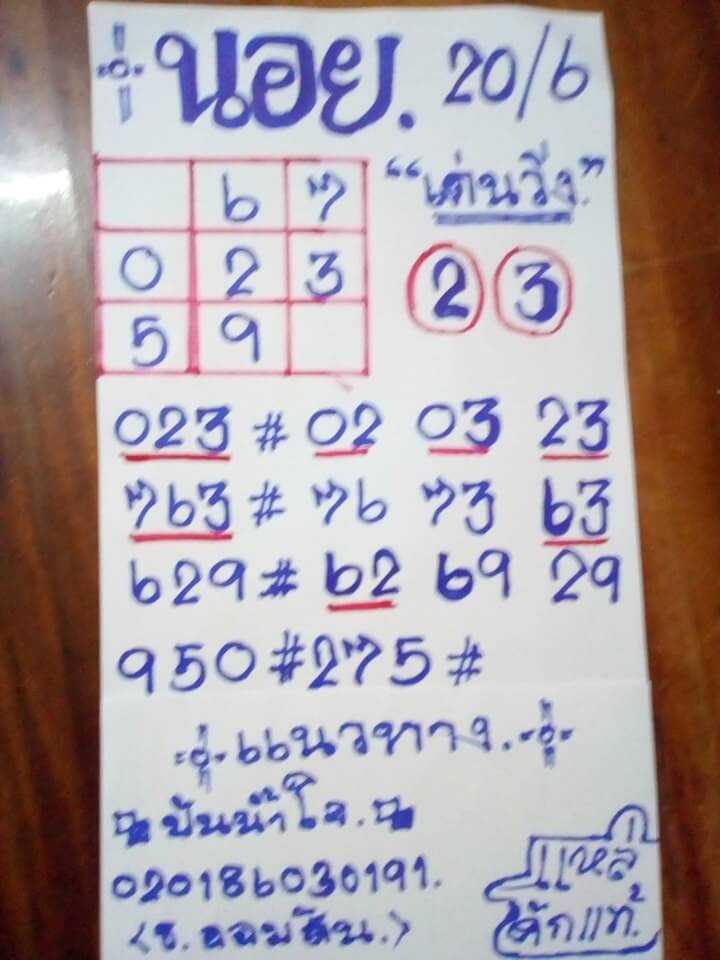 นอย. 20/6
"เด่นวิ่ง."
6 7
0 2 3
5 9
2 3
023 # 02 03 23
763 # 76 73 63
629 # 62 69 29
950 # 275 #
แนวทาง.
ปันน้ำใจ.
020186030191.
(ธ.ออมสิน.)